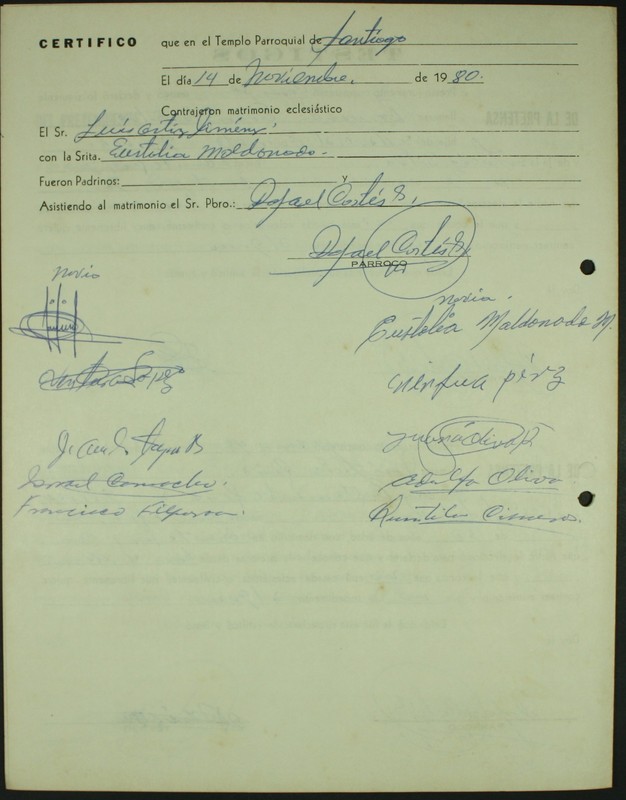 CERTIFICO que en el Templo Parroquial de Santiago
El día 14 de Noviembre. de 1980.
Contrajeron matrimonio eclesiástico
El Sr. Luis Ortiz Jiménz.
con la Srita. Eustolia Maldonado.
Fueron Padrinos: y
Asistiendo al matrimonio el Sr. Pbro.: Rafael Cortés B.
Rafael Cortés B.
PARROCO
novio
novia.
Eustolia Maldonado M.
pérz
Juana Oliva
Israel Camacho. Adulfa Oliva
Francisco Cisneros.